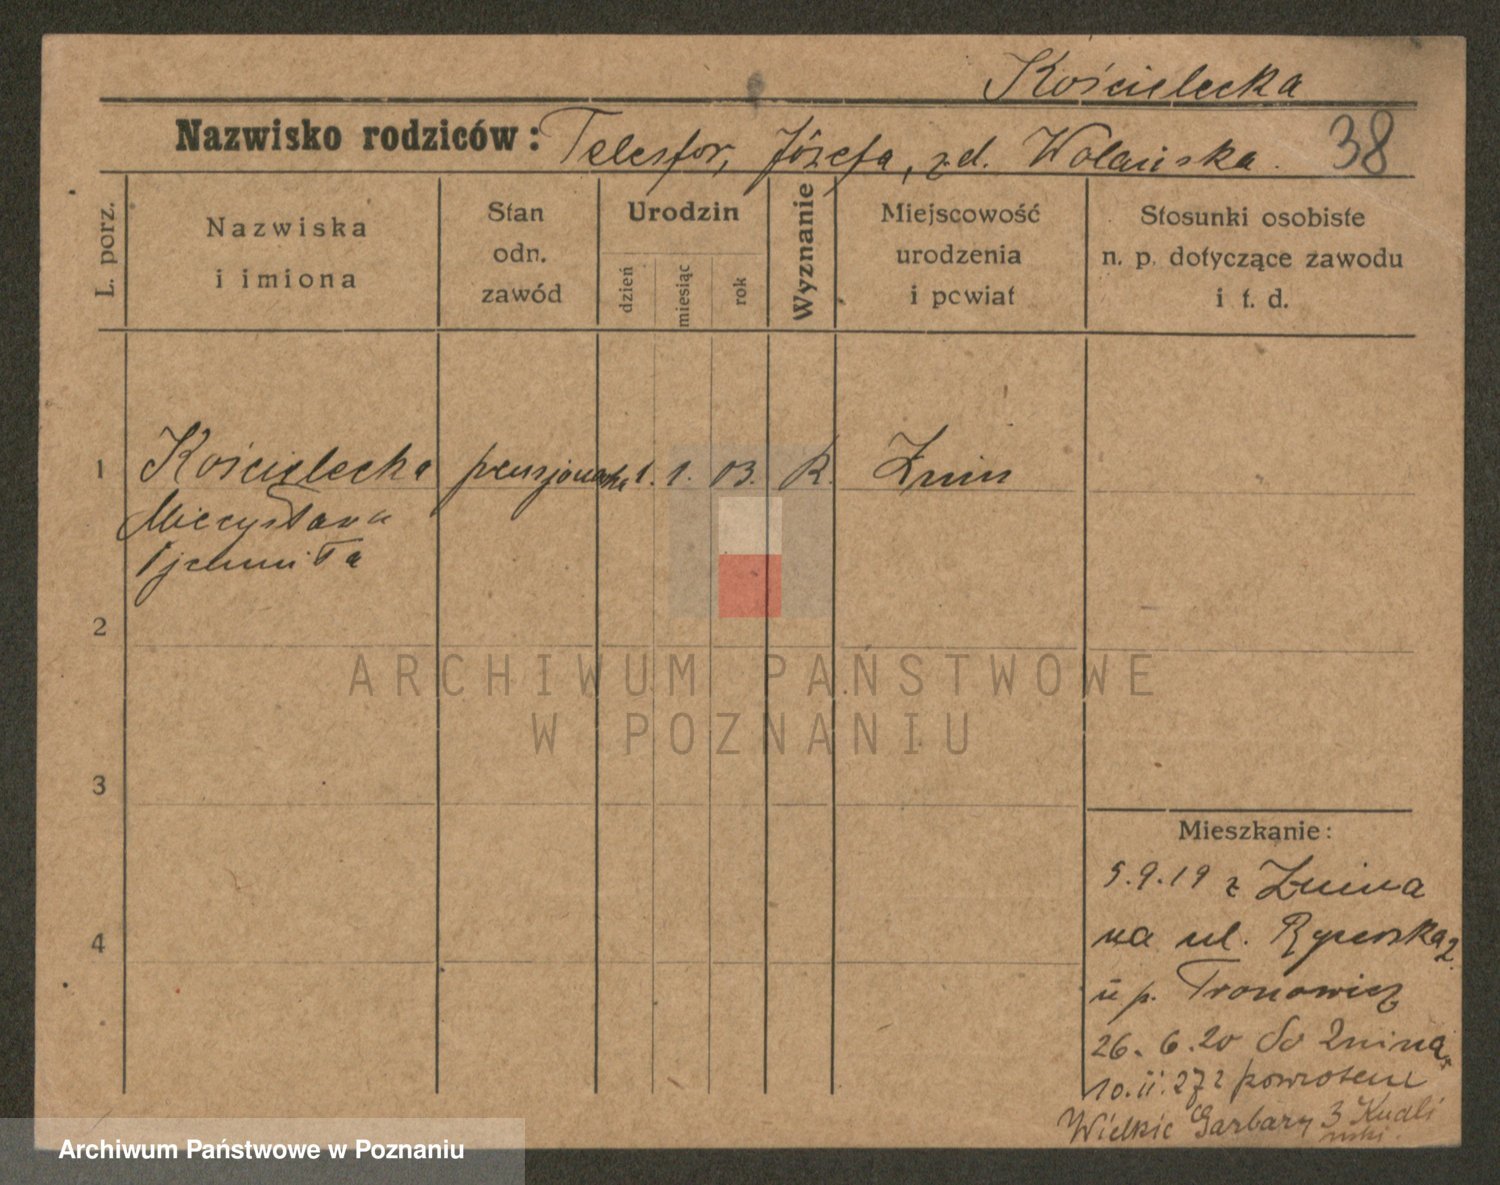 Kościelecka
Nazwisko rodziców: Telesfor, Józefa, z d. Wolańska. 38
L. porz.
Nazwiska
i imiona
Stan
odn.
zawód
Urodzin
dzień
miesiąc
rok
Wyznanie
Miejscowość
urodzenia
i powiat
Stosunki osobiste
n. p. dotyczące zawodu
i t. d.
1 Kościelecka pensjonarka 1. 1. 03. R. Żnin
Mieczysława
2
3
4
Mieszkanie:
5.9.19 z Żnina
na ul. Rycerską 2.
u p. Tronowicz
26. 6.20 do Żnina
10.11.27 z powrotem
Wielkie Garbary 3
ARCHIWUM PAŃSTWOWE
W POZNANIU
Archiwum Państwowe w Poznaniu